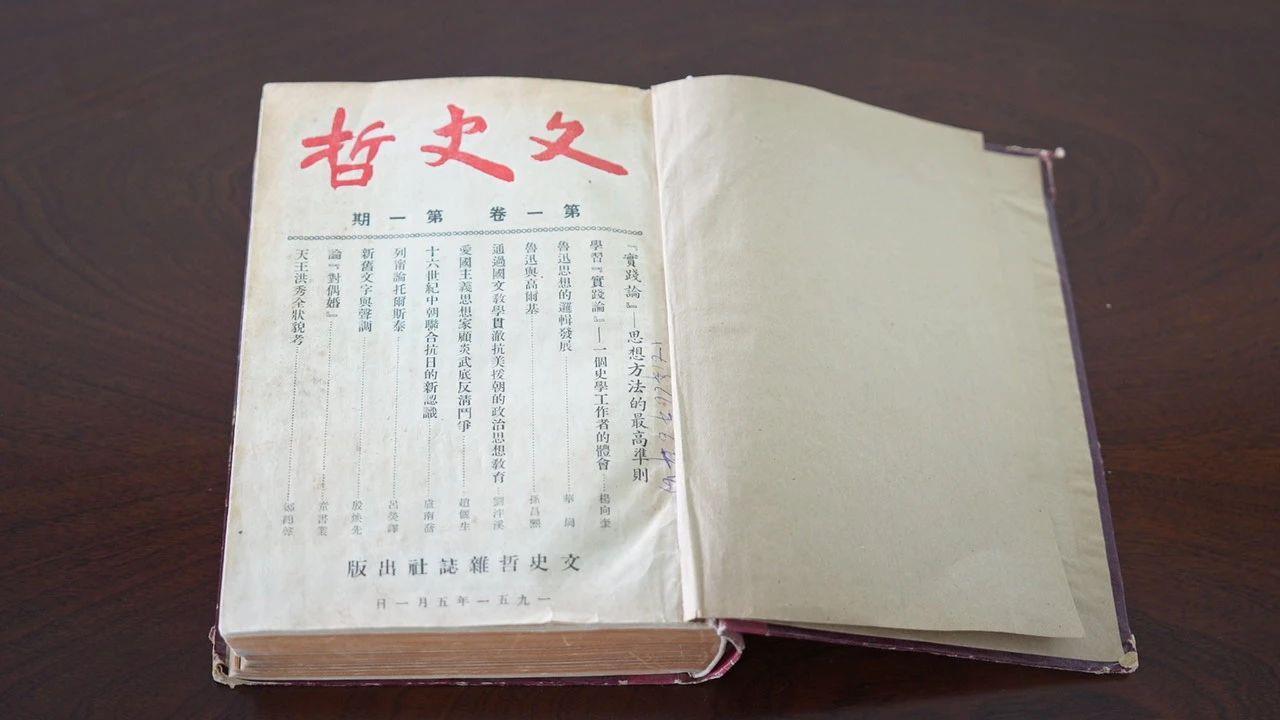 文史哲
第一卷 第一期
『實踐論』——思想方法的最高準則
學習『實踐論』——一個史學工作者的體會……楊向奎
魯迅思想的邏輯發展……華崗
魯迅與高爾基……孫昌熙
通過國文教學貫澈抗美援朝的政治思想教育 劉泮溪
愛國主義思想家顧炎武底反清鬥爭……趙儷生
十六世紀中朝聯合抗日的新認識……盧南喬
列甯論托爾斯泰……呂熒譯
新舊文字與聲調……殷煥先
論『對偶婚』……童書業
天王洪秀全狀貌考
文史哲雜誌社出版
一九五一年五月一日